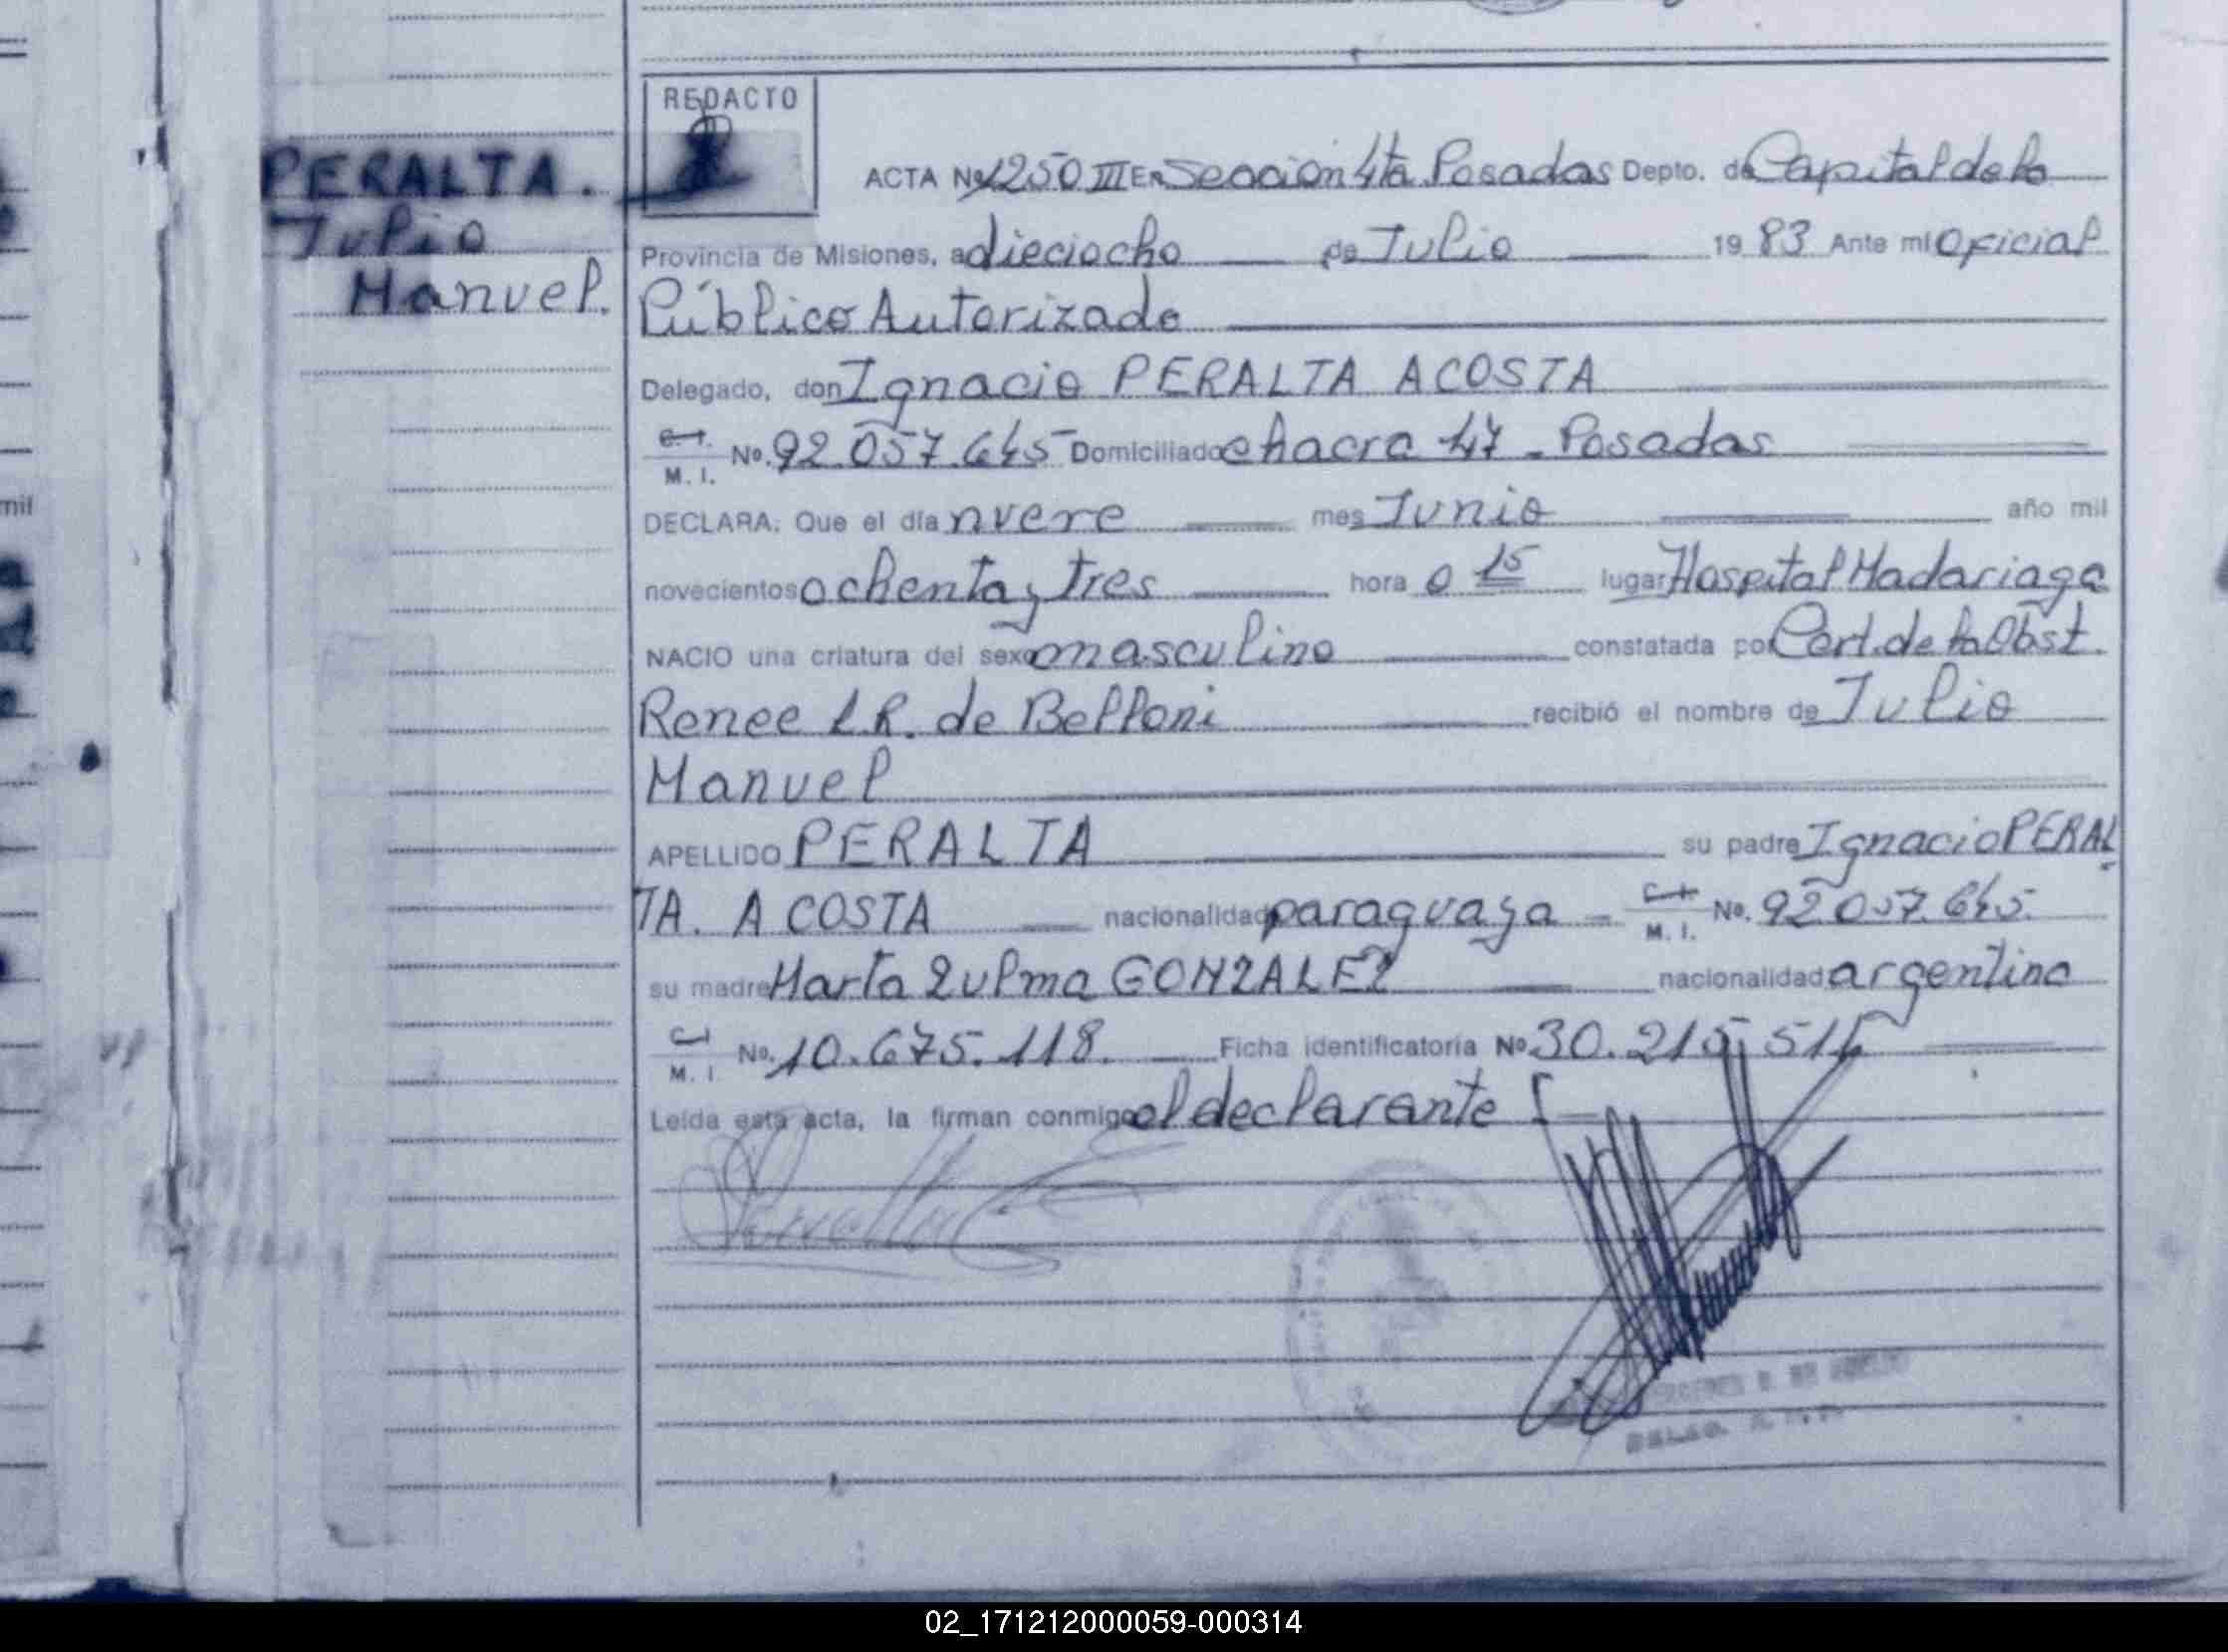 REDACTO
PERALTA.
Julio
Manuel.
ACTA Nº 1250 III EN Sección 4ta Posadas Depto. de Capital de la
Provincia de Misiones, a dieciocho de Julio 1983 Ante mí Oficial
Público Autorizado
Delegado, don Ignacio PERALTA ACOSTA
C.I.
M. I. Nº. 92.057.645 Domiciliado chacra 47 - Posadas
DECLARA: Que el día nueve mes Junio año mil
novecientos ochenta y tres hora 0 15 lugar Hospital Madariaga
NACIO una criatura del sexo masculino constatada por Cert. de la Obst.
Renee L.R. de Belloni recibió el nombre de Julio
Manuel
APELLIDO PERALTA su padre Ignacio PERAL
TA. ACOSTA nacionalidad paraguaya - C.I. M. I. Nº. 92.057.645.
su madre Marta Zulma GONZALEZ nacionalidad argentina
C.I. M. I. Nº. 10.675.118. Ficha identificatoria Nº 30.215.514
Leída esta acta, la firman conmigo el declarante
02_171212000059-000314